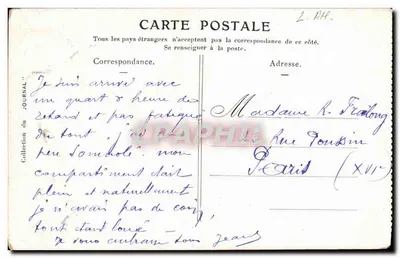 L. RH.
CARTE POSTALE
Tous les pays étrangers n'acceptent pas la correspondance de ce côté.
Se renseigner à la poste.
Correspondance.
Adresse.
Collection du "JOURNAL"
Je suis arrivé avec
un quart d'heure de
retard et pas fatigué
du tout. J'ai un
peu sommolé mon
compartiment était
plein et naturellement
je n'avais pas de coin,
tout étant loué -
Je vous embrasse tous Jean
Madame R.
Rue Poussin
Paris (XVIe